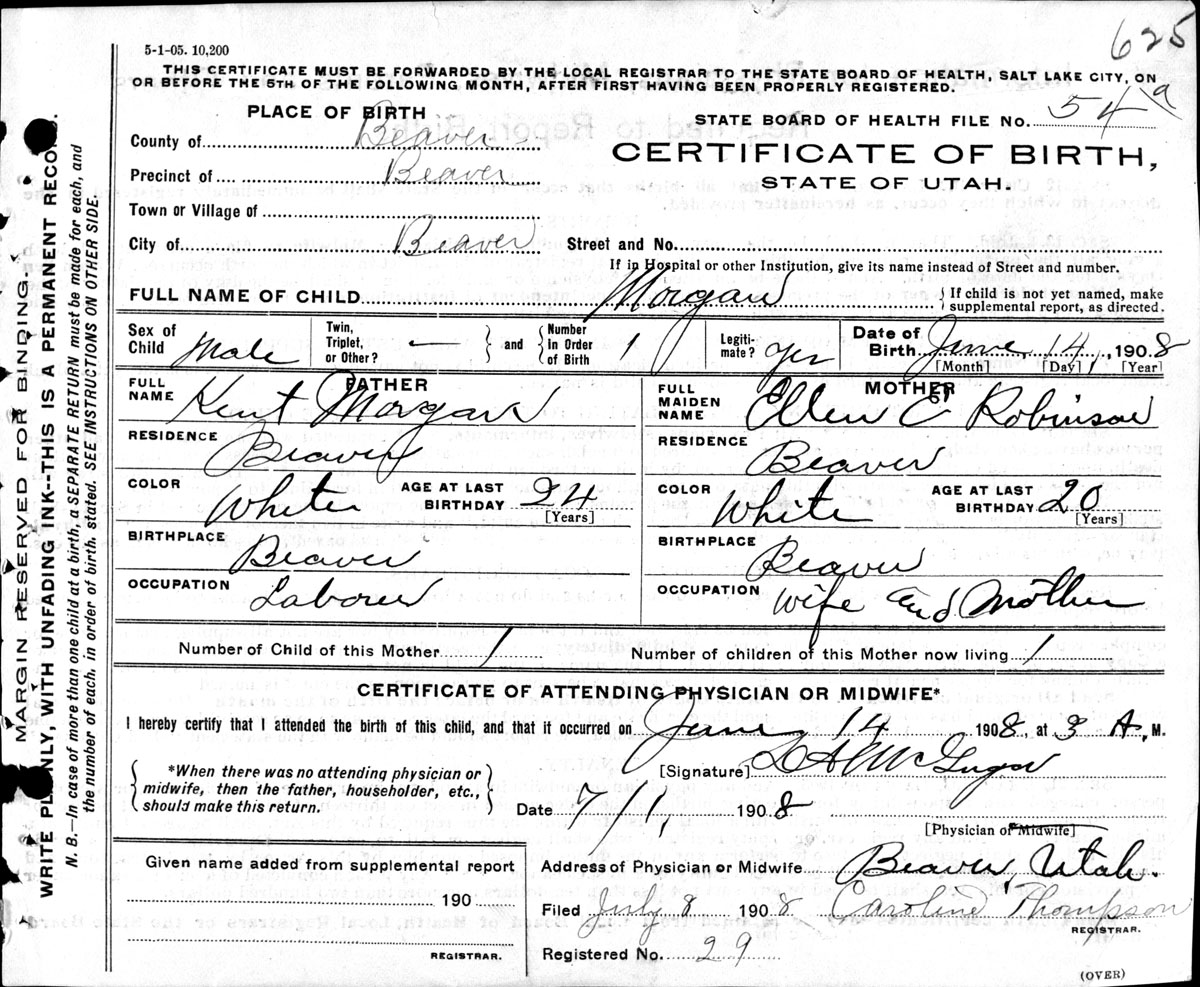 625
5-1-05. 10,200
THIS CERTIFICATE MUST BE FORWARDED BY THE LOCAL REGISTRAR TO THE STATE BOARD OF HEALTH, SALT LAKE CITY, ON
OR BEFORE THE 5TH OF THE FOLLOWING MONTH, AFTER FIRST HAVING BEEN PROPERLY REGISTERED.
PLACE OF BIRTH
STATE BOARD OF HEALTH FILE No. 54 a
County of Beaver
CERTIFICATE OF BIRTH,
Precinct of Beaver
STATE OF UTAH.
Town or Village of
City of Beaver Street and No.
If in Hospital or other Institution, give its name instead of Street and number.
FULL NAME OF CHILD Morgan { If child is not yet named, make supplemental report, as directed.
Sex of Child Male Twin, Triplet, or Other? — } and { Number In Order of Birth 1 Legiti-mate? yes Date of Birth June 14, 1908
[Month] [Day] [Year]
FATHER
FULL NAME Kent Morgan
RESIDENCE Beaver
COLOR White AGE AT LAST BIRTHDAY 24 [Years]
BIRTHPLACE Beaver
OCCUPATION Laborer
MOTHER
FULL MAIDEN NAME Ellen E Robinson
RESIDENCE Beaver
COLOR White AGE AT LAST BIRTHDAY 20 [Years]
BIRTHPLACE Beaver
OCCUPATION Wife and Mother
Number of Child of this Mother 1 Number of children of this Mother now living 1
CERTIFICATE OF ATTENDING PHYSICIAN OR MIDWIFE*
I hereby certify that I attended the birth of this child, and that it occurred on June 14 1908, at 3 A., M.
{ *When there was no attending physician or midwife, then the father, householder, etc., should make this return. }
[Signature]
Date 7/1, 1908
[Physician or Midwife]
Address of Physician or Midwife Beaver, Utah.
Given name added from supplemental report
190
REGISTRAR.
Filed July 8 1908 Caroline Thompson
REGISTRAR.
Registered No. 29
(OVER)
MARGIN RESERVED FOR BINDING.
WRITE PLAINLY, WITH UNFADING INK--THIS IS A PERMANENT RECORD.
N. B.—In case of more than one child at a birth, a SEPARATE RETURN must be made for each, and
the number of each, in order of birth, stated. SEE INSTRUCTIONS ON OTHER SIDE.